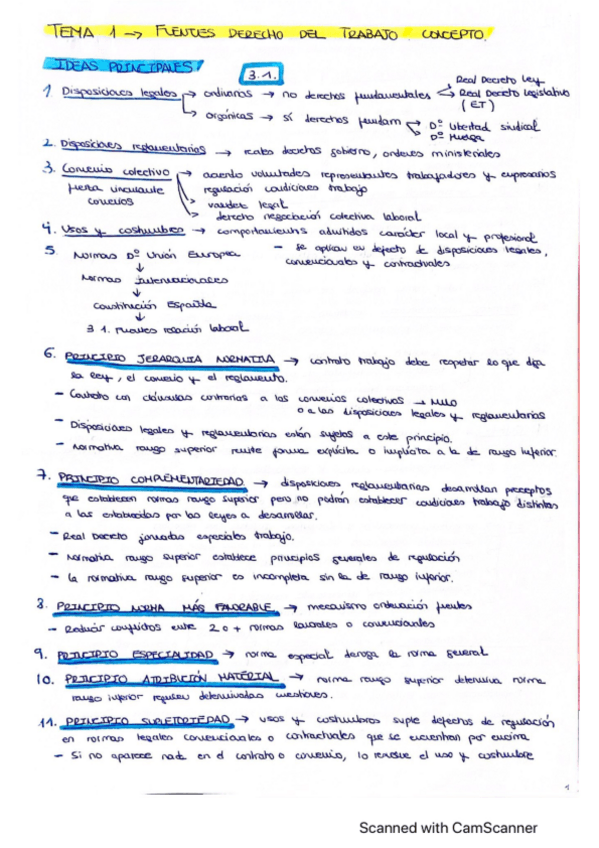 TEMA 1 → FUENTES DERECHO DEL TRABAJO. CONCEPTO.
IDEAS PRINCIPALES/ 3.1.
1. Disposiciones legales → ordinarias → no derechos fundamentales → Real Decreto Ley
→ Real Decreto Legislativo
(ET)
→ orgánicas → sí derechos fundam → Dº libertad sindical
→ Dº Huelga
2. Disposiciones reglamentarias → reales decretos gobierno, ordenes ministeriales
3. Convenio colectivo → acuerdo voluntades representantes trabajadores y empresarios
fuerza vinculante → regulación condiciones trabajo
convenios → validez legal
→ derecho negociación colectiva laboral
4. Usos y costumbres → comportamientos admitidos carácter local y profesional
- se aplican en defecto de disposiciones legales,
convencionales y contractuales
5. Normas Dº Unión Europea
↓
Normas Internacionales
↓
Constitución Española
↓
3.1. Fuentes relación laboral
6. PRINCIPIO JERARQUÍA NORMATIVA → contrato trabajo debe respetar lo que diga
la ley, el convenio y el reglamento.
- Contrato con cláusulas contrarias a los convenios colectivos → NULO
o a las disposiciones legales y reglamentarias
- Disposiciones legales y reglamentarias están sujetas a este principio.
- Normativa rango superior remite forma explícita o implícita a la de rango inferior.
7. PRINCIPIO COMPLEMENTARIEDAD → disposiciones reglamentarias desarrollan preceptos
que establecen normas rango superior pero no podrán establecer condiciones trabajo distintas
a las establecidas por las leyes a desarrollar.
- Real Decreto jornadas especiales trabajo.
- Normativa rango superior establece principios generales de regulación
- la normativa rango superior es incompleta sin la de rango inferior.
8. PRINCIPIO NORMA MÁS FAVORABLE → mecanismo ordenación fuentes
- Reducir conflictos entre 2 o + normas laborales o convencionales
9. PRINCIPIO ESPECIALIDAD → norma especial deroga la norma general
10. PRINCIPIO ATRIBUCIÓN MATERIAL → norma rango superior determina norma
rango inferior regulen determinadas cuestiones.
11. PRINCIPIO SUPLETORIEDAD → usos y costumbres suple defectos de regulación
en normas legales convencionales o contractuales que se encuentran por encima
- Si no aparece nada en el contrato o convenio, lo resuelve el uso y costumbre
1
Scanned with CamScanner